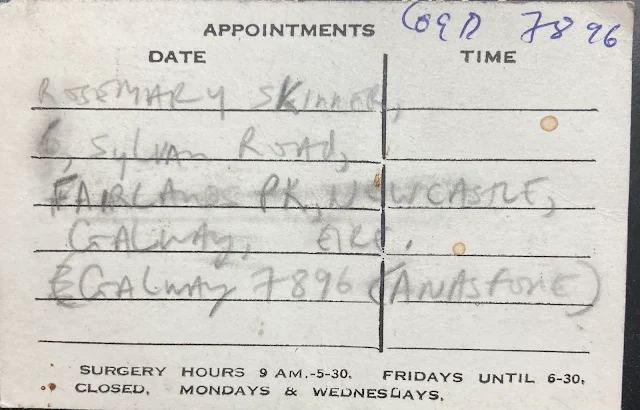 APPOINTMENTS
7896
DATE TIME
ROSEMARY SKINNER,
6, Sylvan ROAD,
FAIRLANDS PK, NEWCASTLE,
GALWAY, EIRE.
GALWAY 7896
SURGERY HOURS 9 AM.-5-30. FRIDAYS UNTIL 6-30.
CLOSED. MONDAYS & WEDNESDAYS.